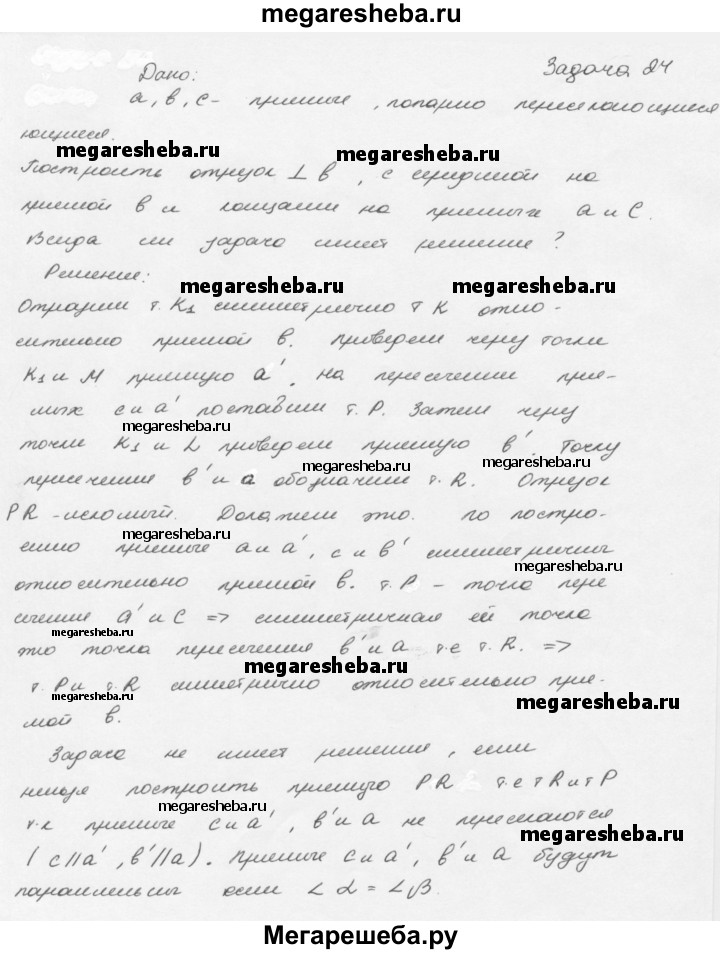 megaresheba.ru
Задача 24
Дано:
а, в, с - прямые, попарно пересекающиеся
ющиеся.
megaresheba.ru megaresheba.ru
Построить отрезок ⊥ в, с серединой на
прямой в и концами на прямых а и С.
Всегда ли задача имеет решение?
Решение:
megaresheba.ru megaresheba.ru
Отразим т. К₁ симметрично т К отно-
сительно прямой в. Проведем через точки
К₁ и М прямую а'. На пересечении пря-
мых с и а' поставим т. Р. Затем через
megaresheba.ru
точки К₁ и L проведем прямую в'. Точку
megaresheba.ru megaresheba.ru
пересечения в' и а обозначим т. R. Отрезок
PR - искомый. Докажем это. По постро-
megaresheba.ru
ению прямые а и а', с и в' симметричны
megaresheba.ru
относительно прямой в. т. Р - точка пере
сечения а' и С => симметричная ей точка
megaresheba.ru
это точка пересечения в' и а т.е т. R. =>
megaresheba.ru
т. Р и т. R симметрично относительно пря-
megaresheba.ru
мой в.
Задача не имеет решения, если
нельзя построить прямую PR т.е т R и т P
megaresheba.ru
т.к прямые С и а', в' и а не пересекаются
megaresheba.ru
( с // а', в' // а ). Прямые С и а', в' и а будут
параллельны если ∠ α = ∠ β.
Мегарешеба.ру